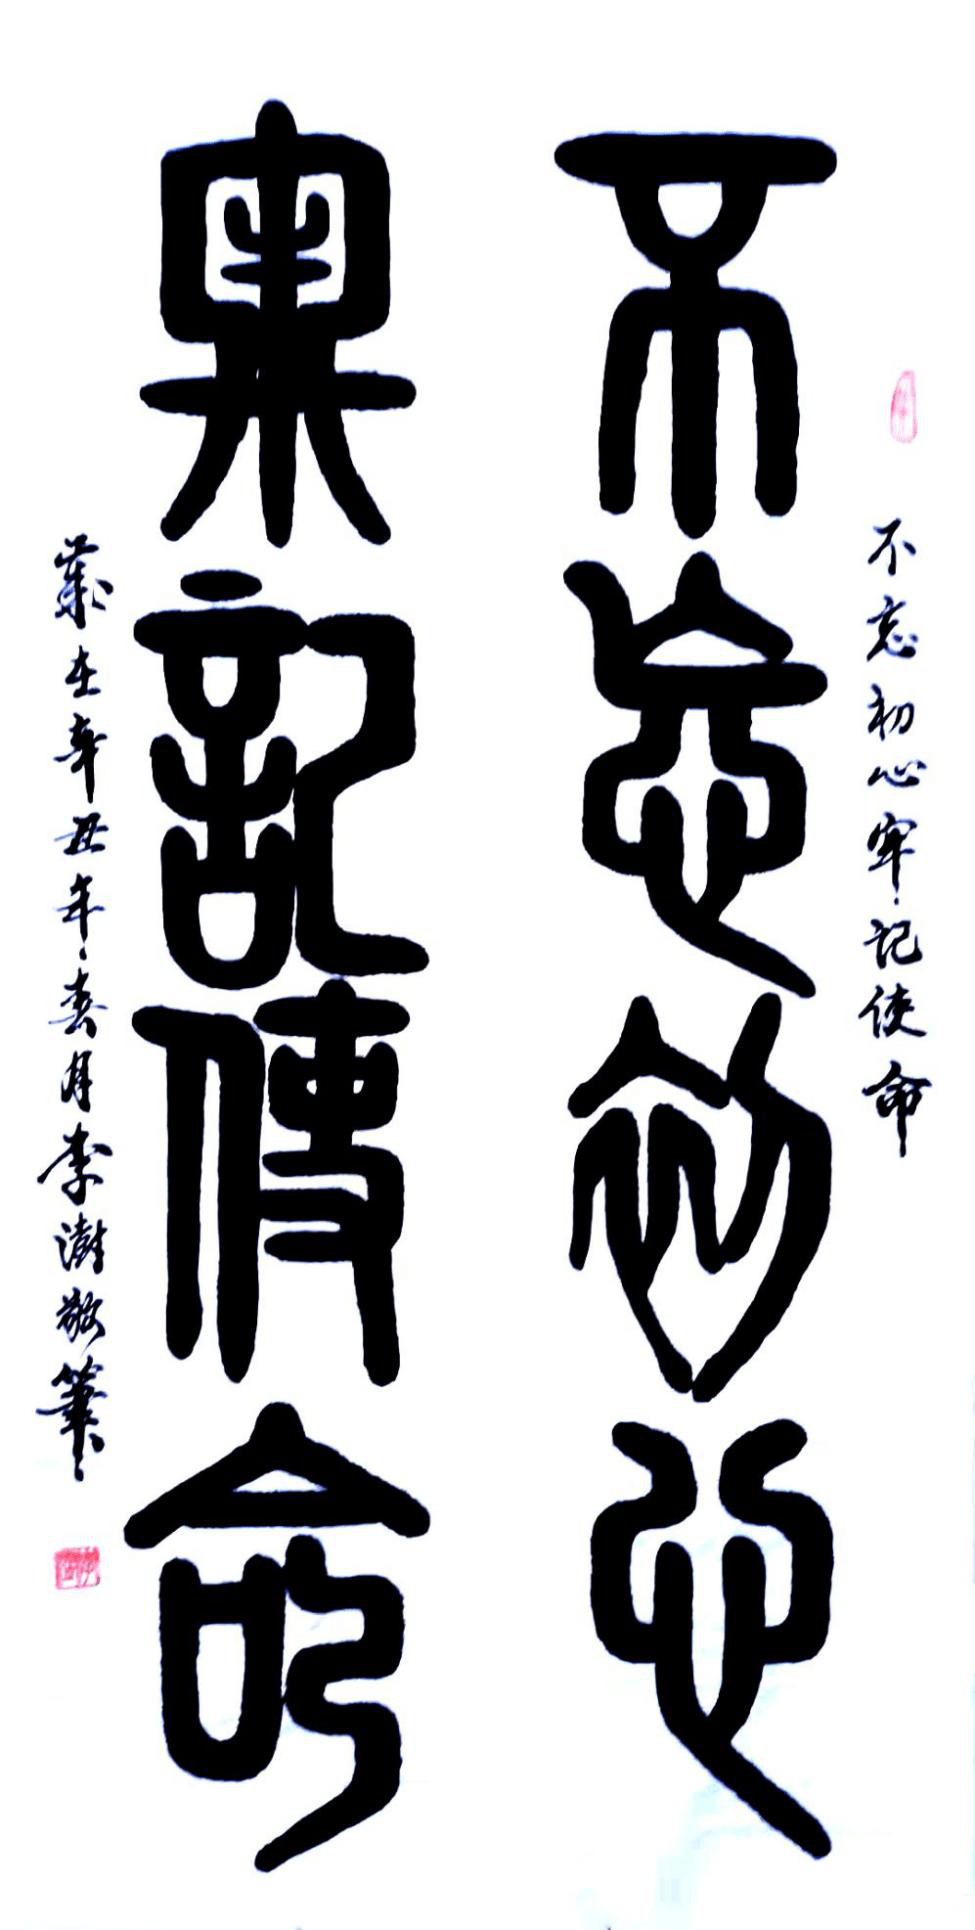 不忘初心牢记使命
不忘初心
牢記使命
歲在辛丑年春月李澍敬筆